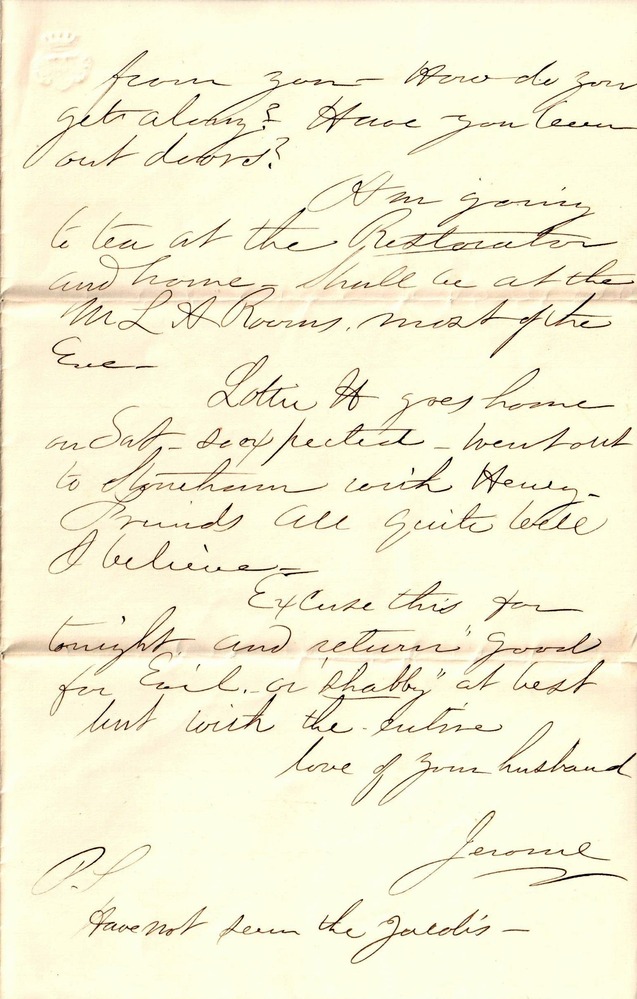 from you - How do you
get along? Have you been
out doors?
Am going
to tea at the Restorator
and home - Shall be at the
M L A Rooms, most of the
Eve -
Lottie H goes home
on Sat - so expected - went out
to Stoneham with Henry -
Friends all quite well
I believe -
Excuse this for
tonight and return "good
for Evil", - or "shabby" at best
but with the entire
love of your husband
Jerome
P.S
Have not seen the